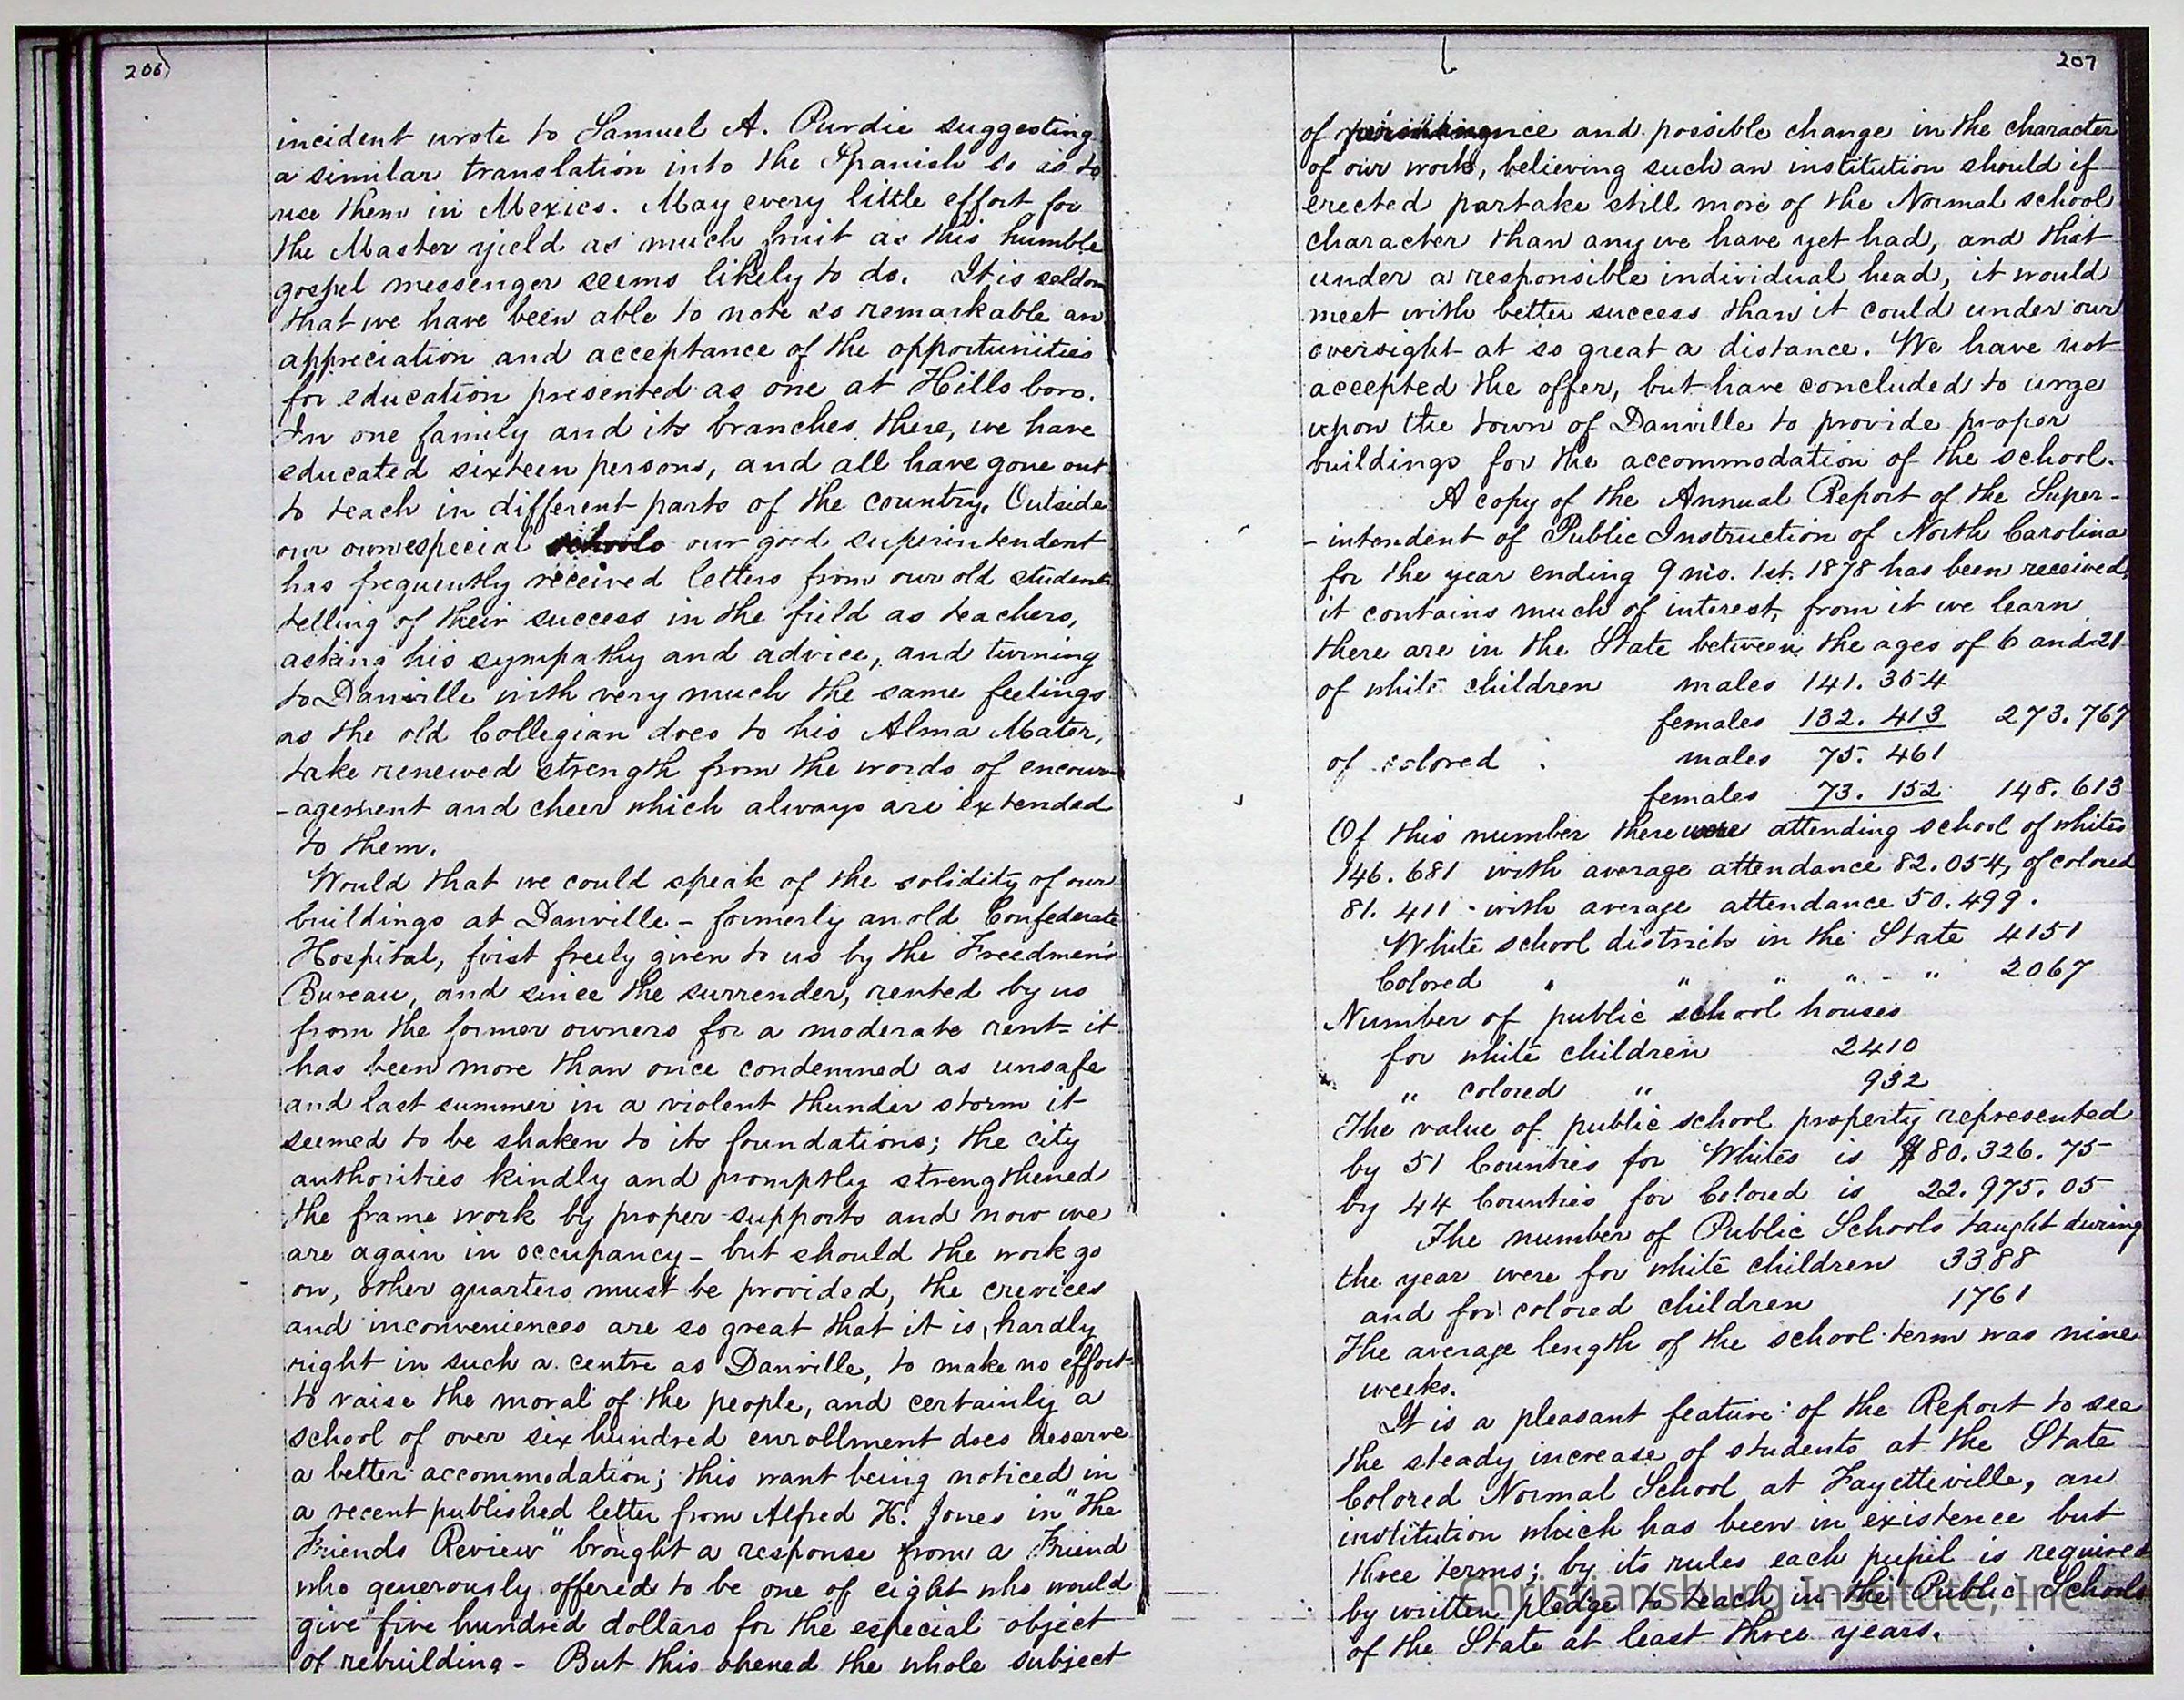 206
incident wrote to Samuel A. Purdie suggesting
a similar translation into the Spanish so as to
use them in Mexico. May every little effort for
the Master yield as much fruit as this humble
gospel messenger seems likely to do. It is seldom
that we have been able to note so remarkable an
appreciation and acceptance of the opportunities
for education presented as one at Hillsboro.
In one family and its branches there, we have
educated sixteen persons, and all have gone out
to teach in different parts of the country. Outside
our own especial schools our good superintendent
has frequently received letters from our old students
telling of their success in the field as teachers,
asking his sympathy and advice, and turning
to Danville with very much the same feelings
as the old Collegian does to his Alma Mater,
take renewed strength from the words of encour-
-agement and cheer which always are extended
to them.
Would that we could speak of the solidity of our
buildings at Danville - formerly an old Confederate
Hospital, first freely given to us by the Freedmen's
Bureau, and since the surrender, rented by us
from the former owners for a moderate rent - it
has been more than once condemned as unsafe
and last summer in a violent thunder storm it
seemed to be shaken to its foundations; the city
authorities kindly and promptly strengthened
the frame work by proper supports and now we
are again in occupancy - but should the work go
on, other quarters must be provided, the crevices
and inconveniences are so great that it is, hardly
right in such a centre as Danville, to make no effort
to raise the moral of the people, and certainly a
school of over six hundred enrollment does deserve
a better accommodation; this want being noticed in
a recent published letter from Alfred H. Jones in "the
Friends Review" brought a response from a Friend
who generously offered to be one of eight who would
give five hundred dollars for the especial object
of rebuilding - But this opened the whole subject
207
of and possible change in the character
of our work, believing such an institution should if
erected partake still more of the Normal school
character than any we have yet had, and that
under a responsible individual head, it would
meet with better success than it could under our
oversight at so great a distance. We have not
accepted the offer, but have concluded to urge
upon the town of Danville to provide proper
buildings for the accommodation of the school.
A copy of the Annual Report of the Super-
-intendent of Public Instruction of North Carolina
for the year ending 9 mo. 1st. 1878 has been received,
it contains much of interest, from it we learn
there are in the State between the ages of 6 and 21
of white children males 141.354
females 132.413 273.767
of colored males 75.461
females 73.152 148.613
Of this number there were attending school of whites
146.681 with average attendance 82.054, of colored
81.411 with average attendance 50.499.
White school districts in the State 4151
Colored " " " " " 2067
Number of public school houses
for white children 2410
" colored " 932
The value of public school property represented
by 51 Counties for Whites is $80.326.75
by 44 Counties for Colored is 22.975.05
The number of Public Schools taught during
the year were for white children 3388
and for colored children 1761
The average length of the school term was nine
weeks.
It is a pleasant feature of the Report to see
the steady increase of students at the State
Colored Normal School at Fayetteville, an
institution which has been in existence but
three terms; by its rules each pupil is required
by written pledge to teach in the Public Schools
of the State at least three years.
Christiansburg Institute, Inc